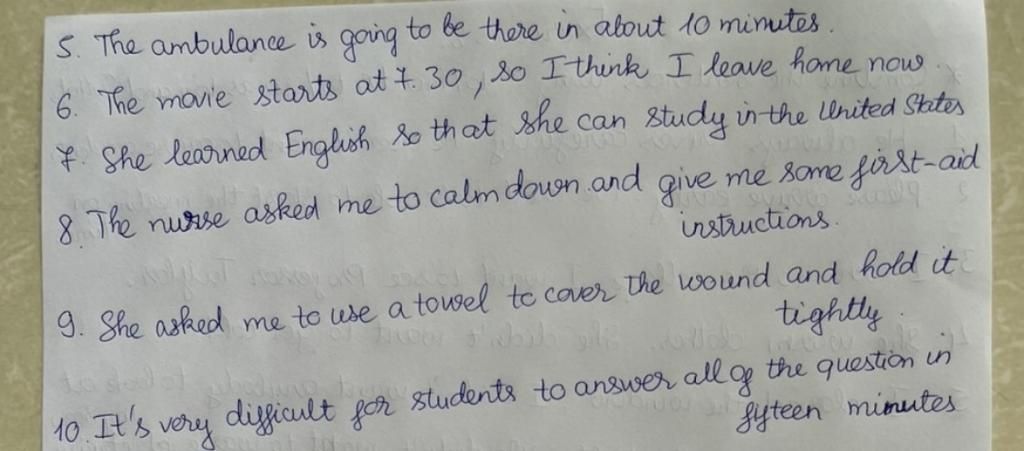 5. The ambulance is going to be there in about 10 minutes.
6. The movie starts at 7.30, so I think I leave home now.
7. She learned English so that she can study in the United States
8. The nurse asked me to calm down and give me some first-aid
instructions.
9. She asked me to use a towel to cover the wound and hold it
tightly.
10. It's very difficult for students to answer all of the question in
fyteen minutes